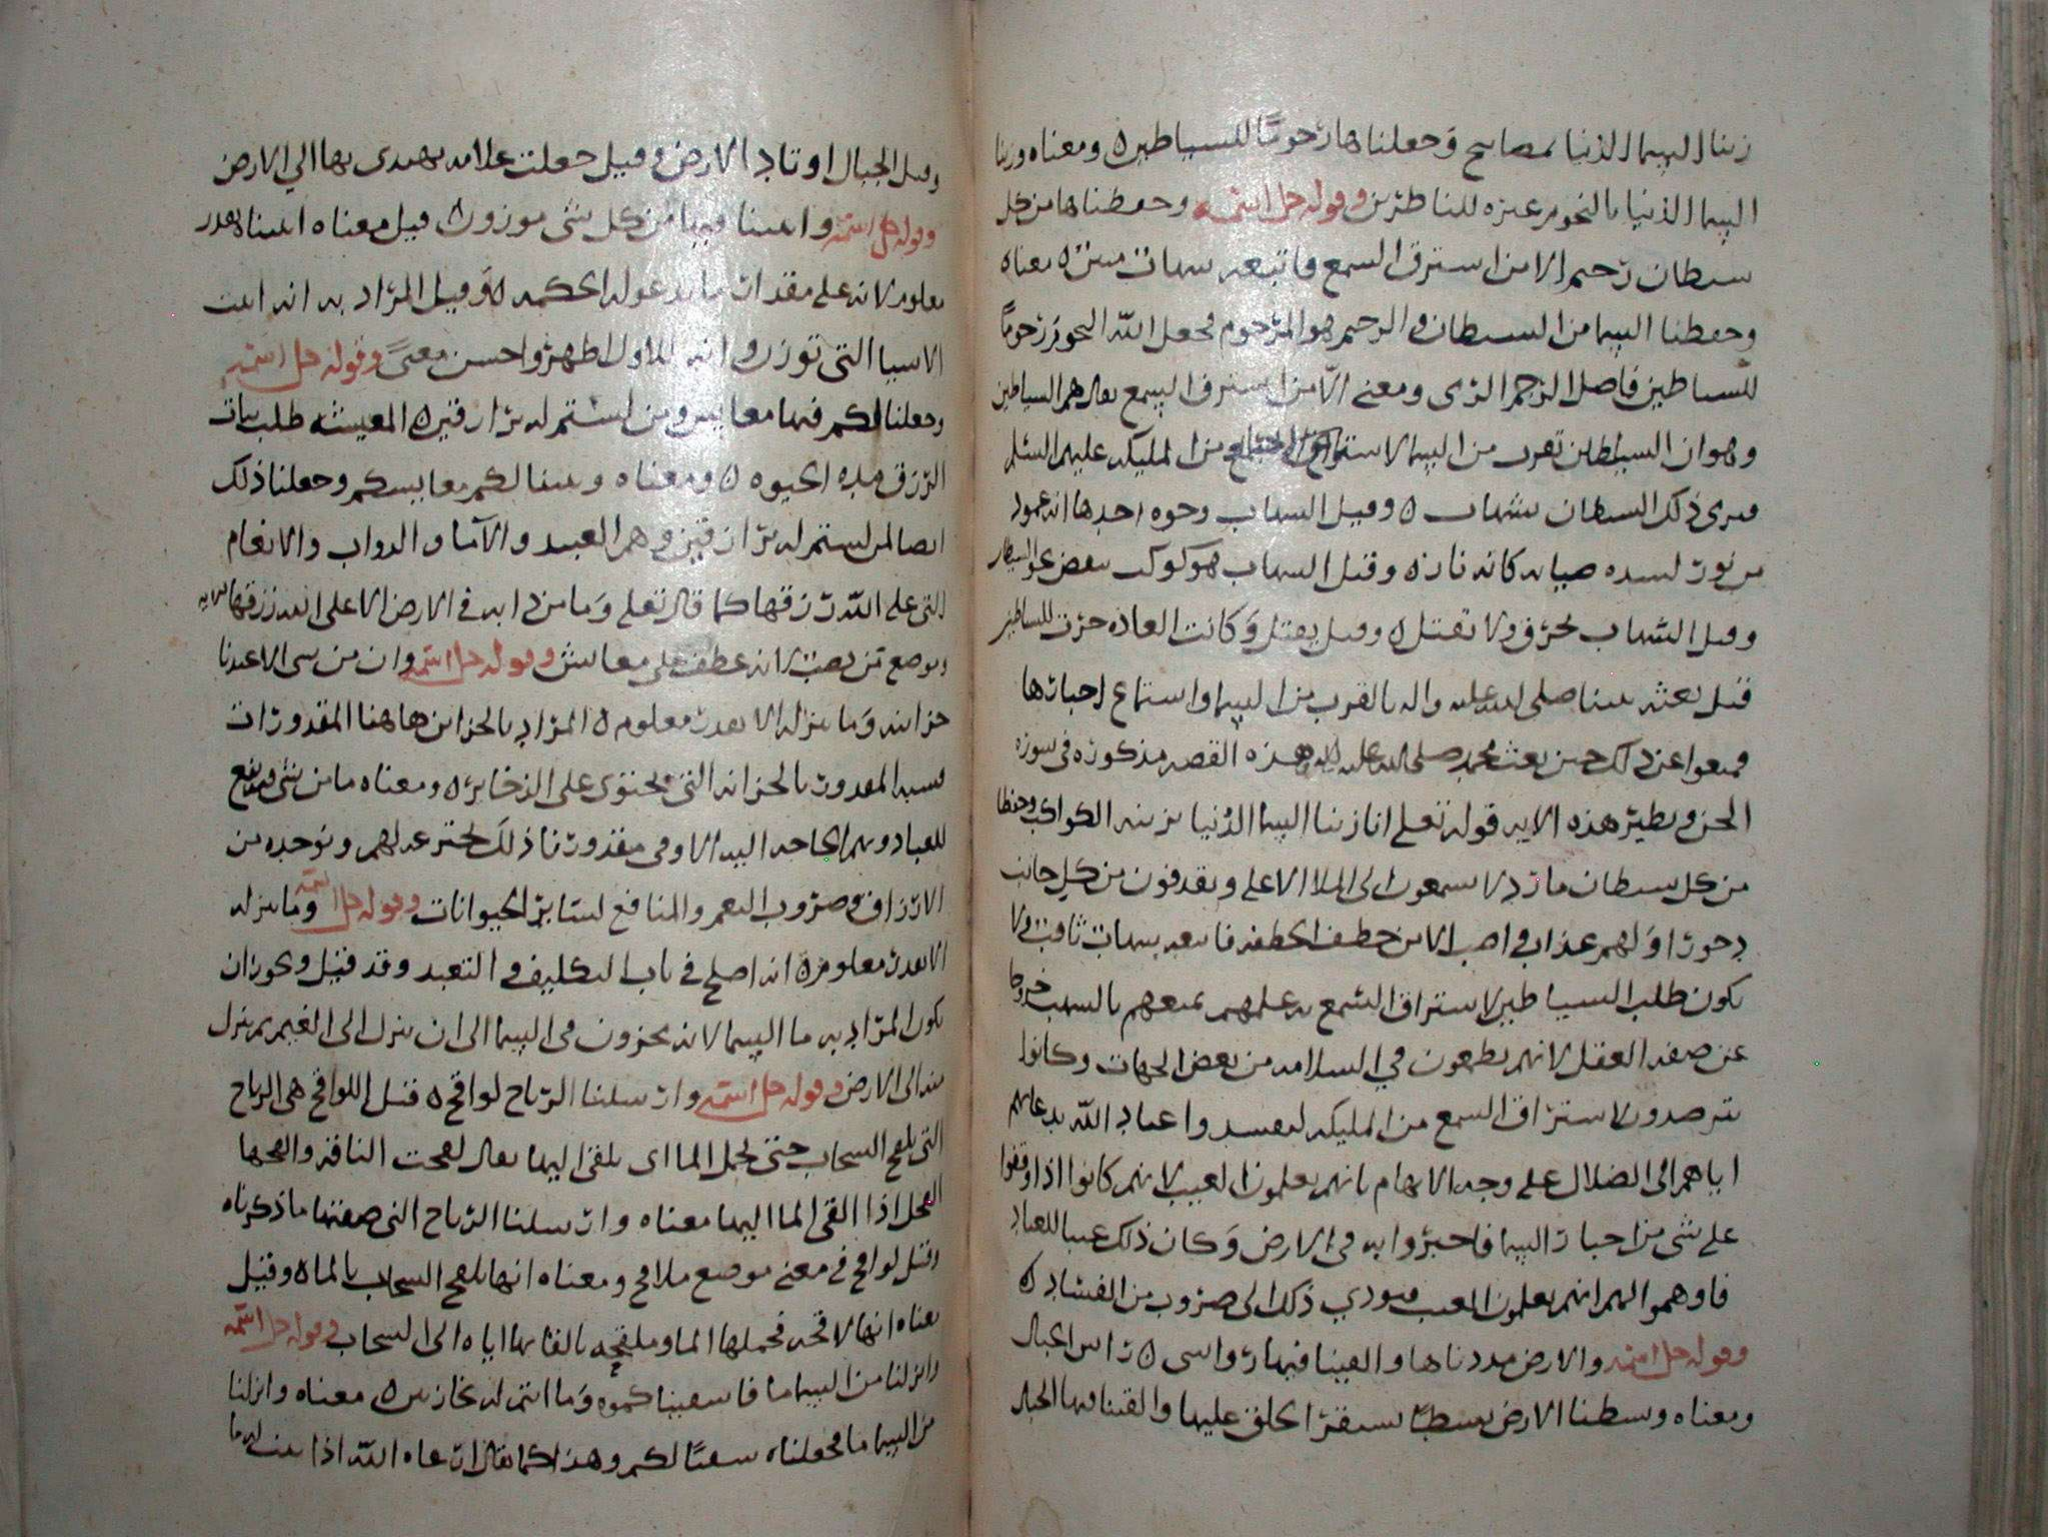 زينا السما الدنيا بمصابيح وجعلناها رجومًا للشياطين ٥ ومعناه وزينا
السما الدنيا بالنجوم عبرة للناظرين وقوله جل اسمه وحفظناها من كل
شيطان رجيم الا من استرق السمع فاتبعه شهاب مبين ٥ معناه
وحفظنا السما من الشيطان والرجيم هو المرجوم فجعل الله النجوم رجومًا
للشياطين فاصل الرجم الرمى ومعنى الا من استرق السمع يقال هم الشياطين
وهو ان الشياطين تقرب من السما لاستراق من المليكه عليهم السلم
فيرمى ذلك الشيطان بشهاب ٥ وقيل الشهاب وجوه احدها انه عمود
من نور لشده ضيائه كانه نار ٥ وقيل الشهاب هو كوكب
وقيل الشهاب يحرق ولا تقتل ٥ وقيل يقتل وكانت العاده جرت للشياطين
قبل بعثه نبينا صلى الله عليه واله بالقرب من السما واستماع اخبارها
فمنعوا عن ذلك حين بعث محمد صلى الله عليه واله وهذه القصه مذكوره في سوره
الجن ونظير هذه الايه قوله تعلى انا زينا السما الدنيا بزينه الكواكب وحفظا
من كل شيطان مارد لا يسمعون الى الملا الاعلى ويقذفون من كل جانب
دحورًا ولهم عذاب واصب الا من خطف الخطفه فاتبعه شهاب ثاقب ولا
يكون طلب الشياطين لاستراق السمع مع علمهم بمنعهم بالشهب خروجا
عن صفه العقل لانهم يطمعون في السلامه من بعض الجهات وكانوا
يترصدون لاستراق السمع من المليكه ليفسدوا عباد الله بدعايهم
اياهم الى الضلال على وجه الايهام بانهم يعلمون الغيب لانهم كانوا اذا وقفوا
على شى من اخبار السما فاخبروا به في الارض وكان ذلك غيبا للعباد
فاوهموا انهم يعلمون الغيب فيودي ذلك الى ضروب من الفساد ٥
وقوله جل اسمه والارض مددناها والقينا فيها رواسى ٥ راس الجبال
ومعناه وبسطنا الارض بسطًا يستقر الخلق عليها والقينا فيها الجبال
وقيل الجبال اوتاد الارض وقيل جعلت علامه يهتدى بها الى الارض
وقوله جل اسمه وانبتنا فيها من كل شى موزون ٥ قيل معناه انبتنا بقدر
معلوم لانه على مقدار ما تدعو له الحكمه ٥ وقيل المراد به انه انبت
الاشيا التى توزن والاول اظهر واحسن معنىً وقوله جل اسمه
وجعلنا لكم فيها معايش ومن لستم له برازقين ٥ المعيشه طلب سات
الرزق مده الحيوه ٥ ومعناه وبينا لكم معايشكم وجعلنا ذلك
ايضا لمن لستم له برازقين وهم العبيد والآما والدواب والانعام
التى على الله رزقها كما قال تعلى وما من دابه في الارض الا على الله رزقها
وموضع من نصب لانه عطف على معايش وقوله جل اسمه وان من شى الا عندنا
خزاينه وما ننزله الا بقدر معلوم ٥ المراد بالخزاين هاهنا المقدورات
فشبه المقدور بالخزانه التى تحتوى على الذخاير ٥ ومعناه ما من شى
للعباد وبهم الحاجه اليه الا وفى مقدورنا ذلك نخترعه لهم ونوجده من
الارزاق وضروب النعم والمنافع لساير الحيوانات وقوله جل اسمه وما ننزله
الا بقدر معلوم ٥ انه اصلح في باب التكليف والتعبد وقد قيل ويجوز ان
يكون المراد به ما السما لانه مخزون في السما الى ان ينزل الى الغيم ثم ينزل
منه الى الارض وقوله جل اسمه وارسلنا الرياح لواقح ٥ قيل اللواقح هى الرياح
التى تلقح السحاب حتى يحمل الما اى يلقى اليها يقال لقحت الناقة والقحها
الفحل اذا القى الما اليها معناه وارسلنا الرياح التى صفتها ما ذكرناه
وقيل لواقح في معنى موضع ملاقح ومعناه انها تلقح السحاب بالماه وقيل
معناه انها لاقحه فحملها الما وملقحه بالقايها اياه الى السحاب وقوله جل اسمه
وانزلنا من السما ما فاسقيناكموه وما انتم له بخازنين ٥ معناه وانزلنا
من السما ما فجعلناه سقيًا لكم وهذا كما يقال اذا